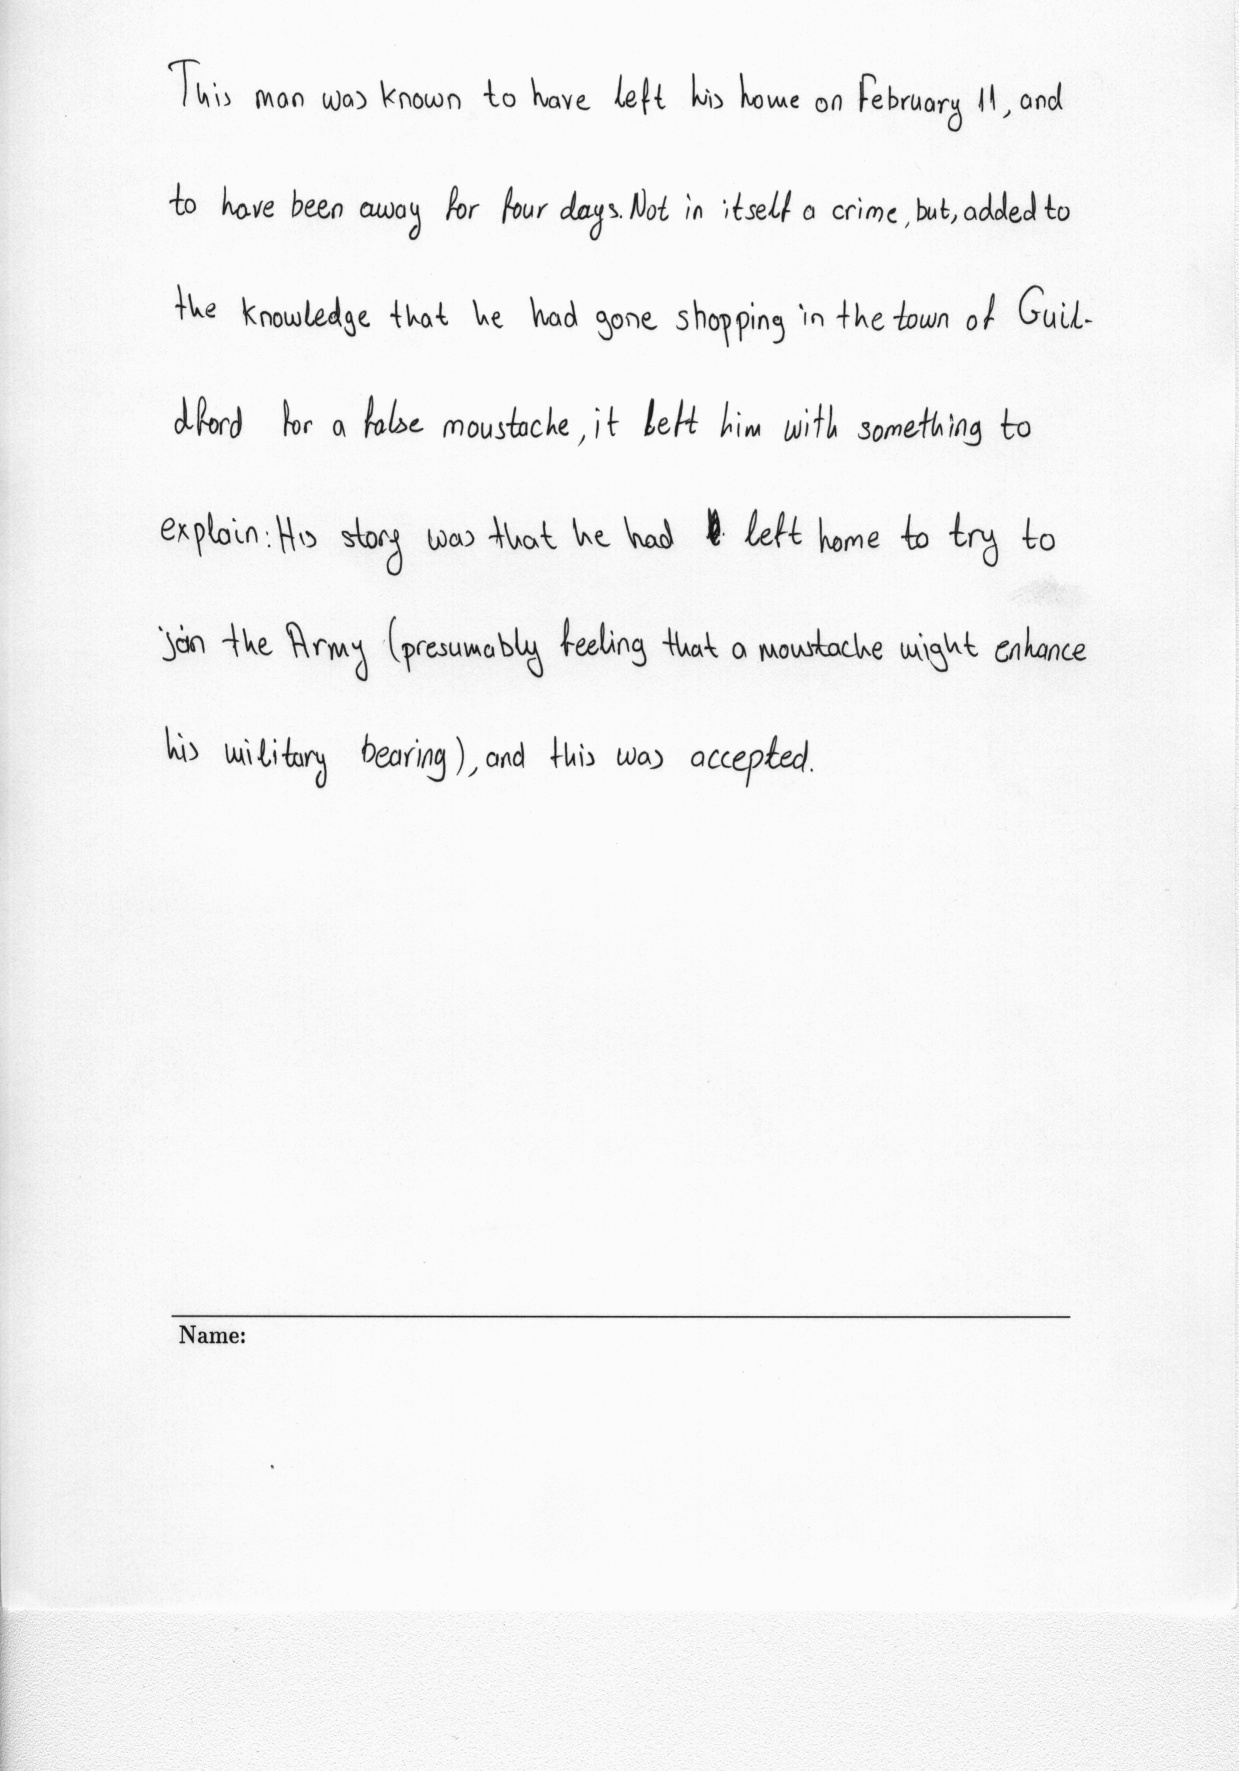 This man was known to have left his home on February 11, and
to have been away for four days. Not in itself a crime, but, added to
the knowledge that he had gone shopping in the town of Guil-
dford for a false moustache, it left him with something to
explain: His story was that he had left home to try to
join the Army (presumably feeling that a moustache might enhance
his military bearing), and this was accepted.
Name: